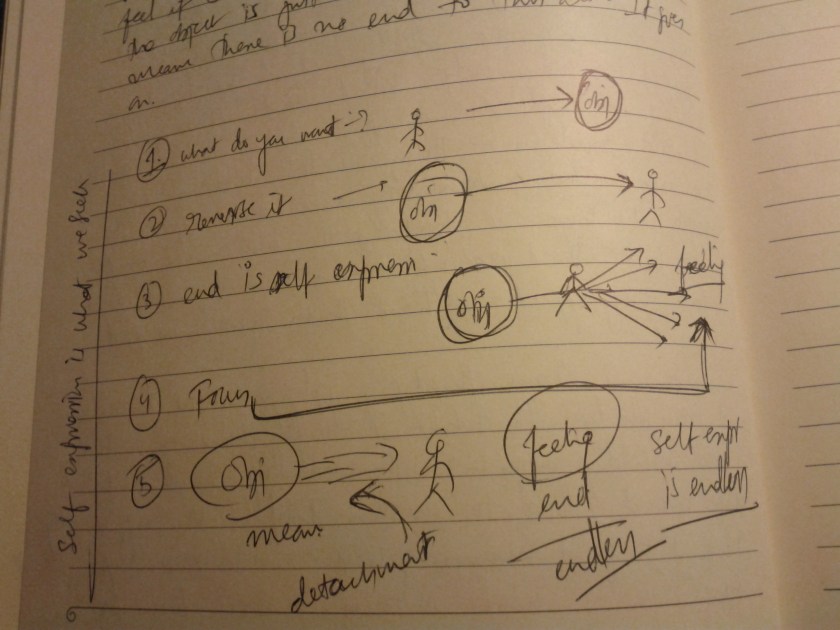 feel it
the object is just
means there is no end to this It goes
on.
1. what do you want → obj
2 reverse it → obj
3 end is self expressn obj feeling
4 Focus
5 Obj feeling self expr
end is endless
means
detachment endless
Self expression is what we seek